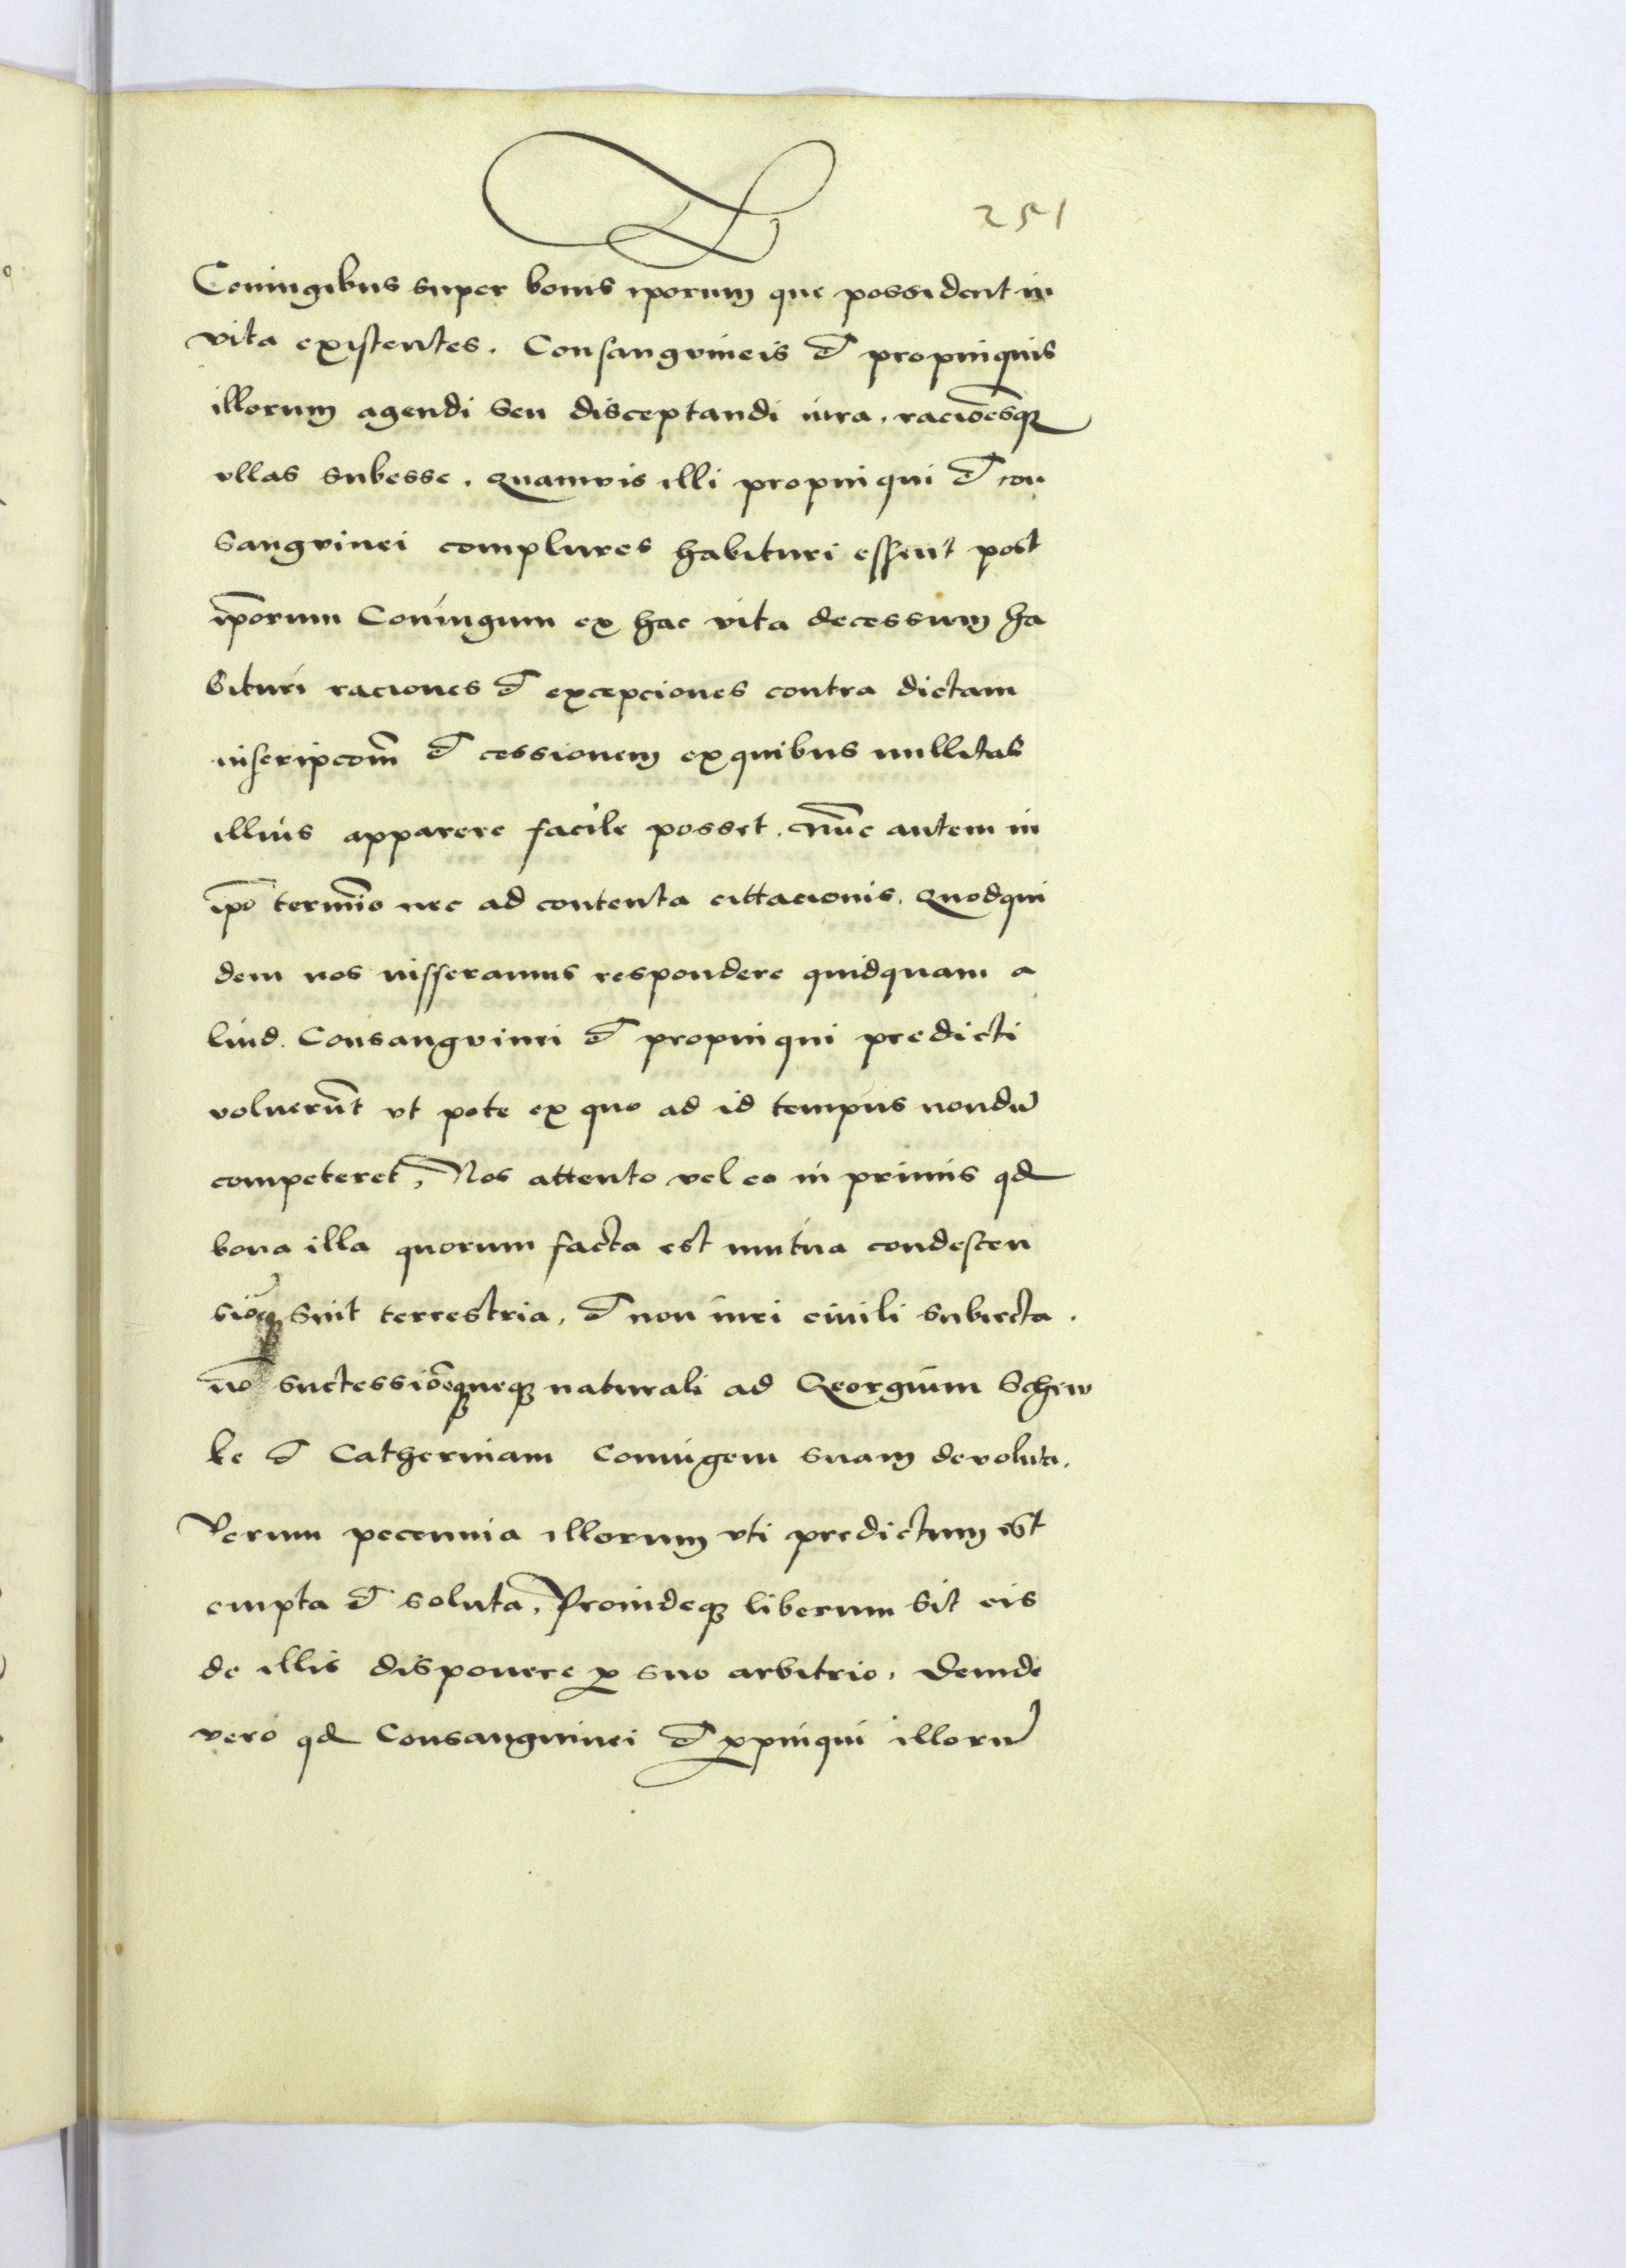 251
Coniugibus super bonis iporum que possident in
vita existentes. Consangvineis et propinquis
illorum agendi seu disceptandi iura, racio͞esq
vllas subesse. Quamvis illi propinqui et con
sangvinei complures habituri essent post
ip̄orum Coniugum ex hac vita decessum ha
bituri raciones et excepciones contra dictam
inscripcom̄ et cessionem ex quibus nullitas
illius apparere facile posset. Nūc autem in
ip̄o termīo nec ad contenta cittacionis, Quodqui
dem nos iusseramus respondere quidquam a
liud. Consangvinei et propinqui predicti
voluerūt vt pote ex quo ad id tempus nondū
competeret, Nos attento vel eo in primis qd
bona illa quorum facta est mutua condescen
sio sint terrestria, et non iuri ciuili subiecta.
successio͞eq naturali ad Georgium Schew
ke et Catherinam Coniugem suam devoluta.
Verum pecunia illorum vti predictum est
empta et soluta, Proindeq liberum sit eis
de illis disponere p suo arbitrio. Deinde
vero qd Consanguinei et ppinqui illorū